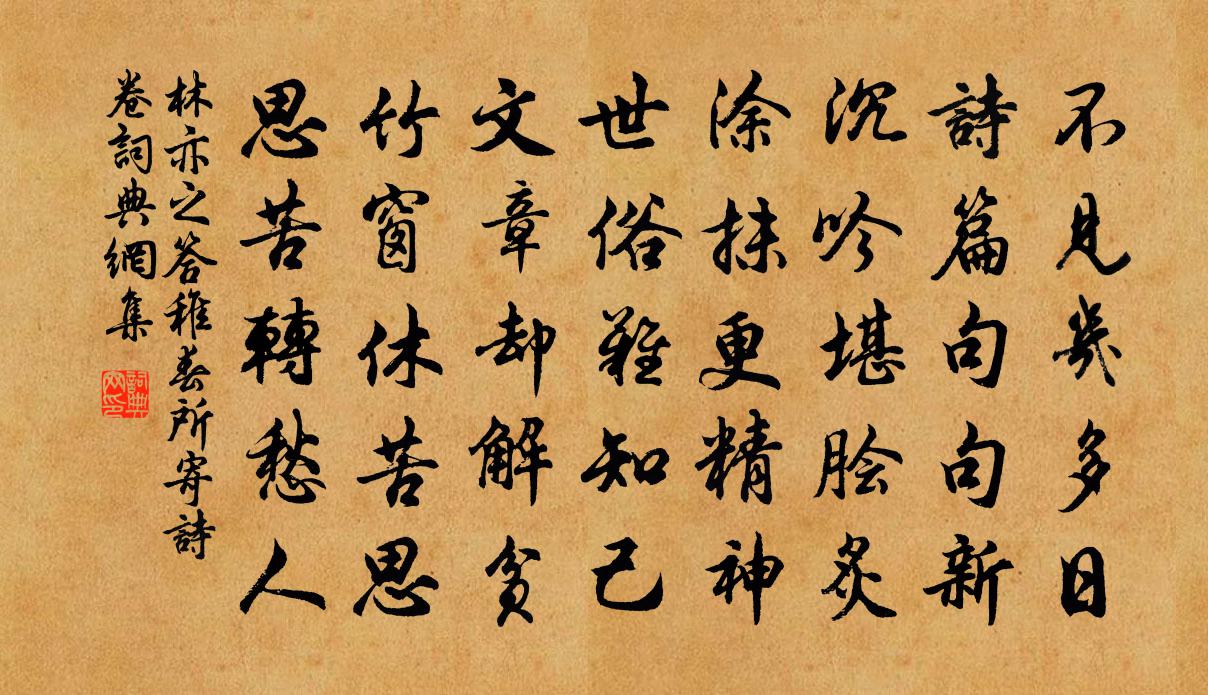 不見幾多日
詩篇句句新
沉吟堪膾炙
涂抹更精神
世俗難知己
文章却解貧
竹窗休苦思
思苦轉愁人
林亦之答稚春所寄詩
卷詞典網集
詞典網印